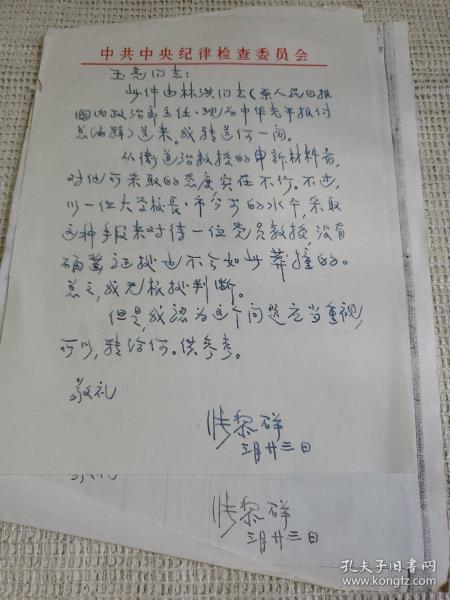 中共中央纪律检查委员会
玉亮同志:
此件由林洪同志(原人民日报
国内政治部主任、现为中华老年报付
总编辑)送来。我转送何一阅。
从衡道治教授的申訴材料看,
对他所采取的态度实在不行。不过,
以一位大学校长、市公安的水平,采取
这种手段来对待一位党员教授,没有
确凿证据也不会如此莽撞的。
总之,我无根据判断。
但是,我認为这个问题应当重视,
可以转给何。供参考。
敬礼
张黎群
三月廿三日
敬礼
张黎群
三月廿三日
孔夫子旧书网
www.kongfz.com